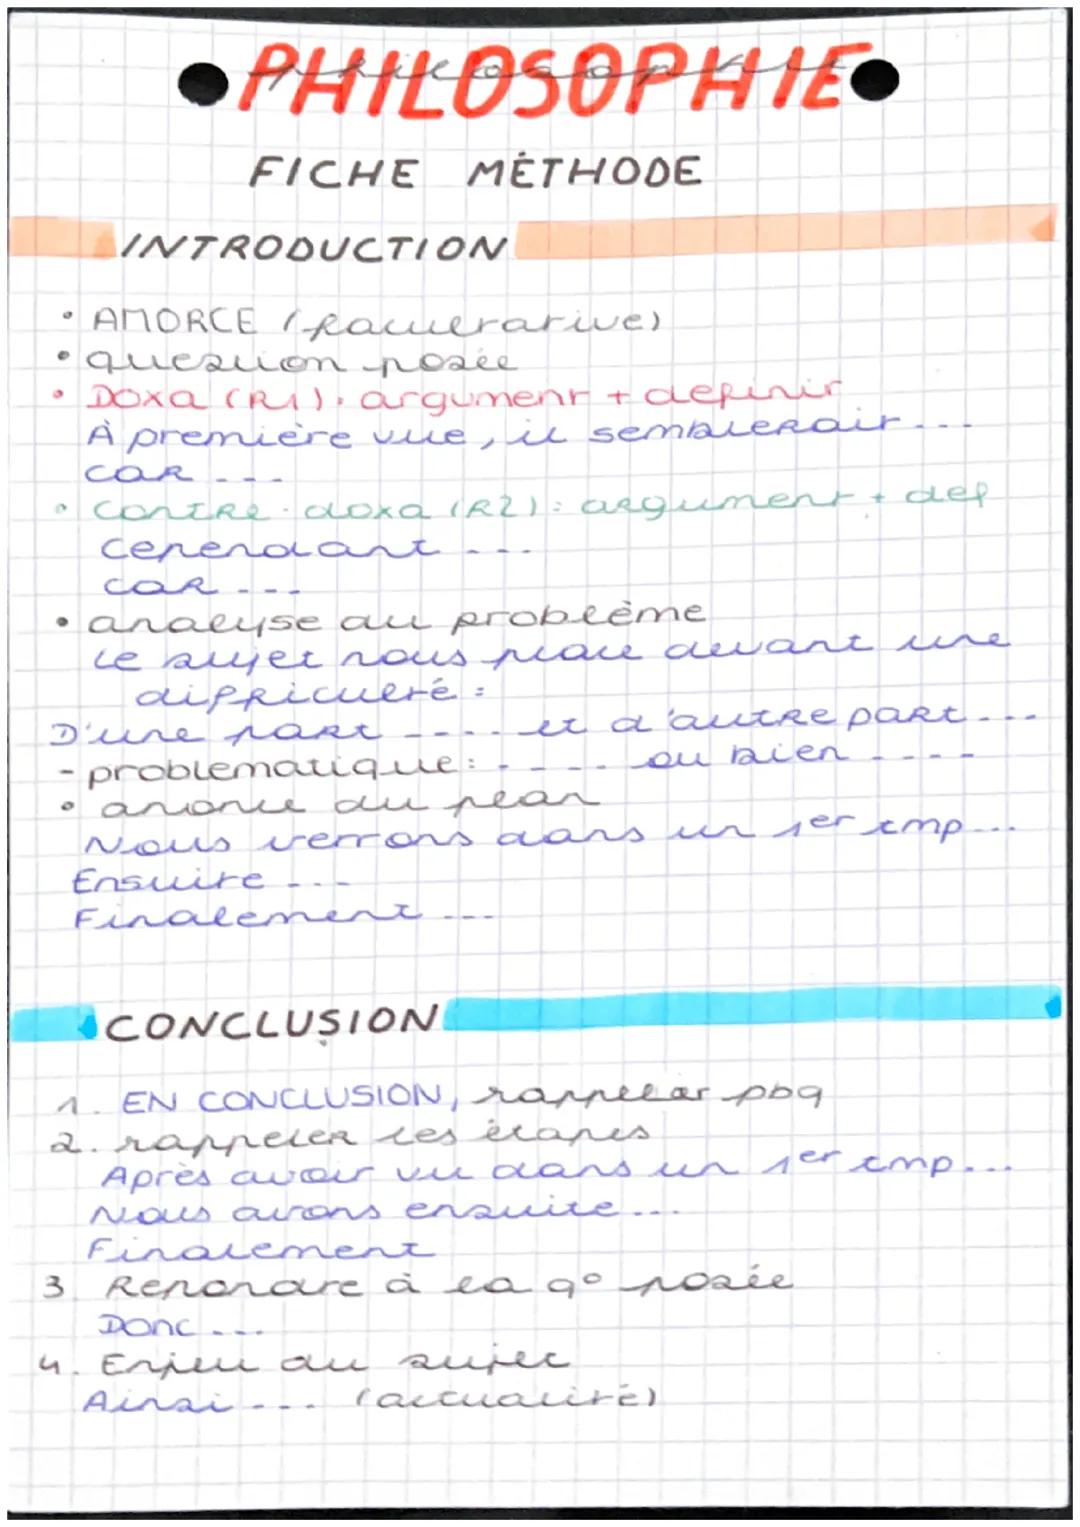 PHILOSOPHIE
FICHE MÉTHODE
INTRODUCTION
• AMORCE (facultative)
• question posée
• DOXA (R1): argument + définir
À première vue, il semblerait...
car ---
• Contre-doxa (R2): argument + def
Cependant ---
car ---
• analyse du problème
Le sujet nous place devant une
difficulté :
D'une part ---- et d'autre part ---
- problematique: ---- ou bien ----
• anonce du plan
Nous verrons dans un 1er tmp...
Ensuite ---
Finalement ---
CONCLUSION
1. EN CONCLUSION, rappeler pbq
2. rappeler les étapes
Après avoir vu dans un 1er tmp...
Nous avons ensuite...
Finalement
3. Repondre à la q° posée
Donc ---
4. Enjeu du sujet
Ainsi --- (actualité)